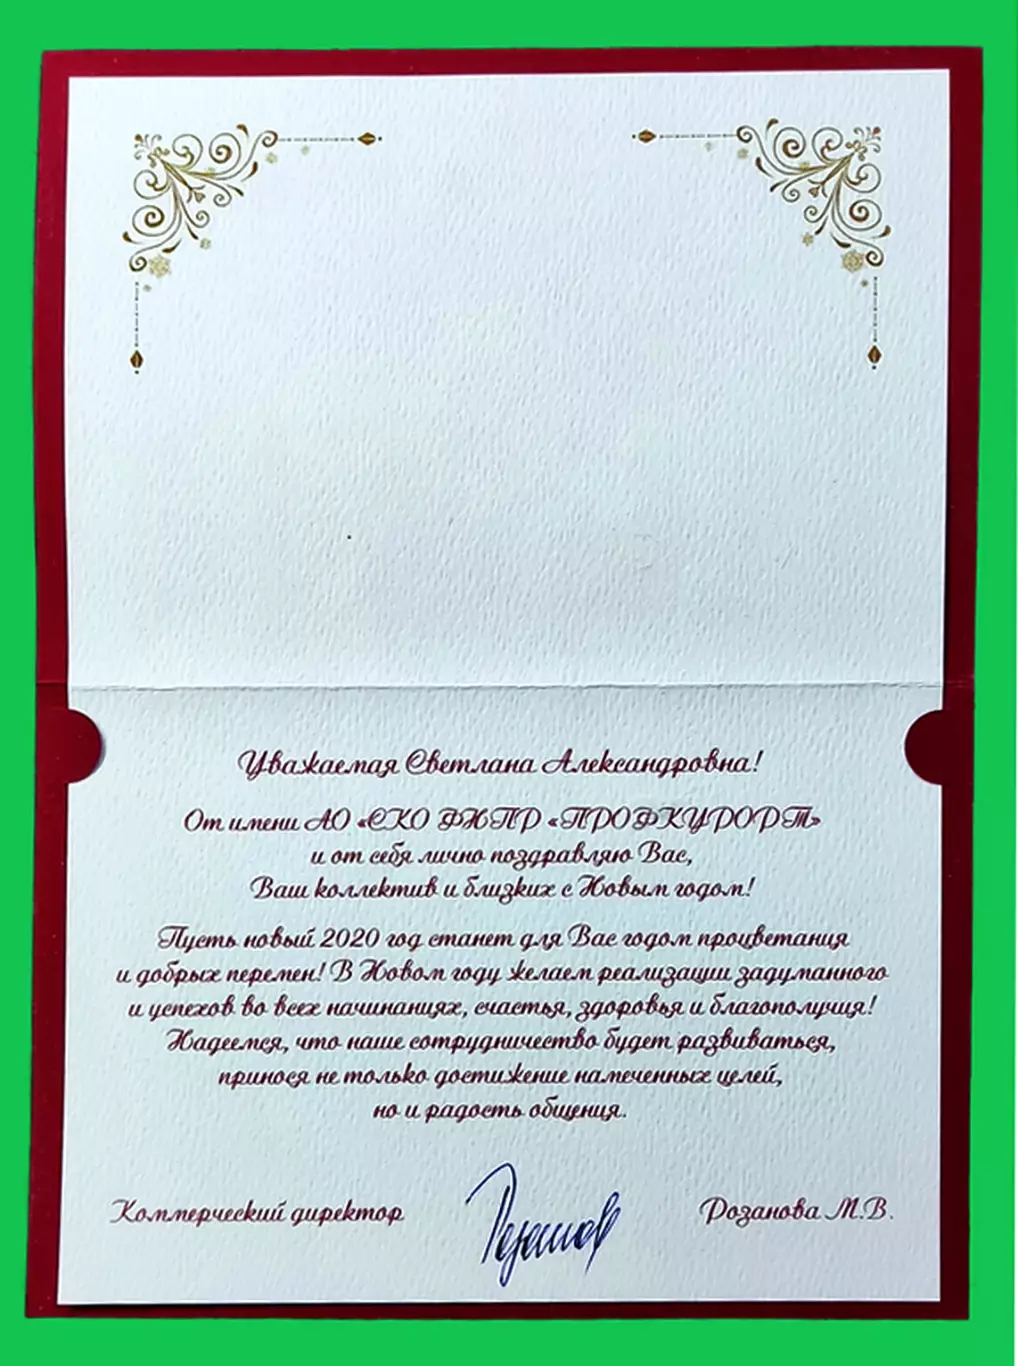 Уважаемая Светлана Александровна!
От имени АО «СКО ФНПР «ПРОФКУРОРТ»
и от себя лично поздравляю Вас,
Ваш коллектив и близких с Новым годом!
Пусть новый 2020 год станет для Вас годом процветания
и добрых перемен! В Новом году желаем реализации задуманного
и успехов во всех начинаниях, счастья, здоровья и благополучия!
Надеемся, что наше сотрудничество будет развиваться,
принося не только достижение намеченных целей,
но и радость общения.
Коммерческий директор Розанова М.В.